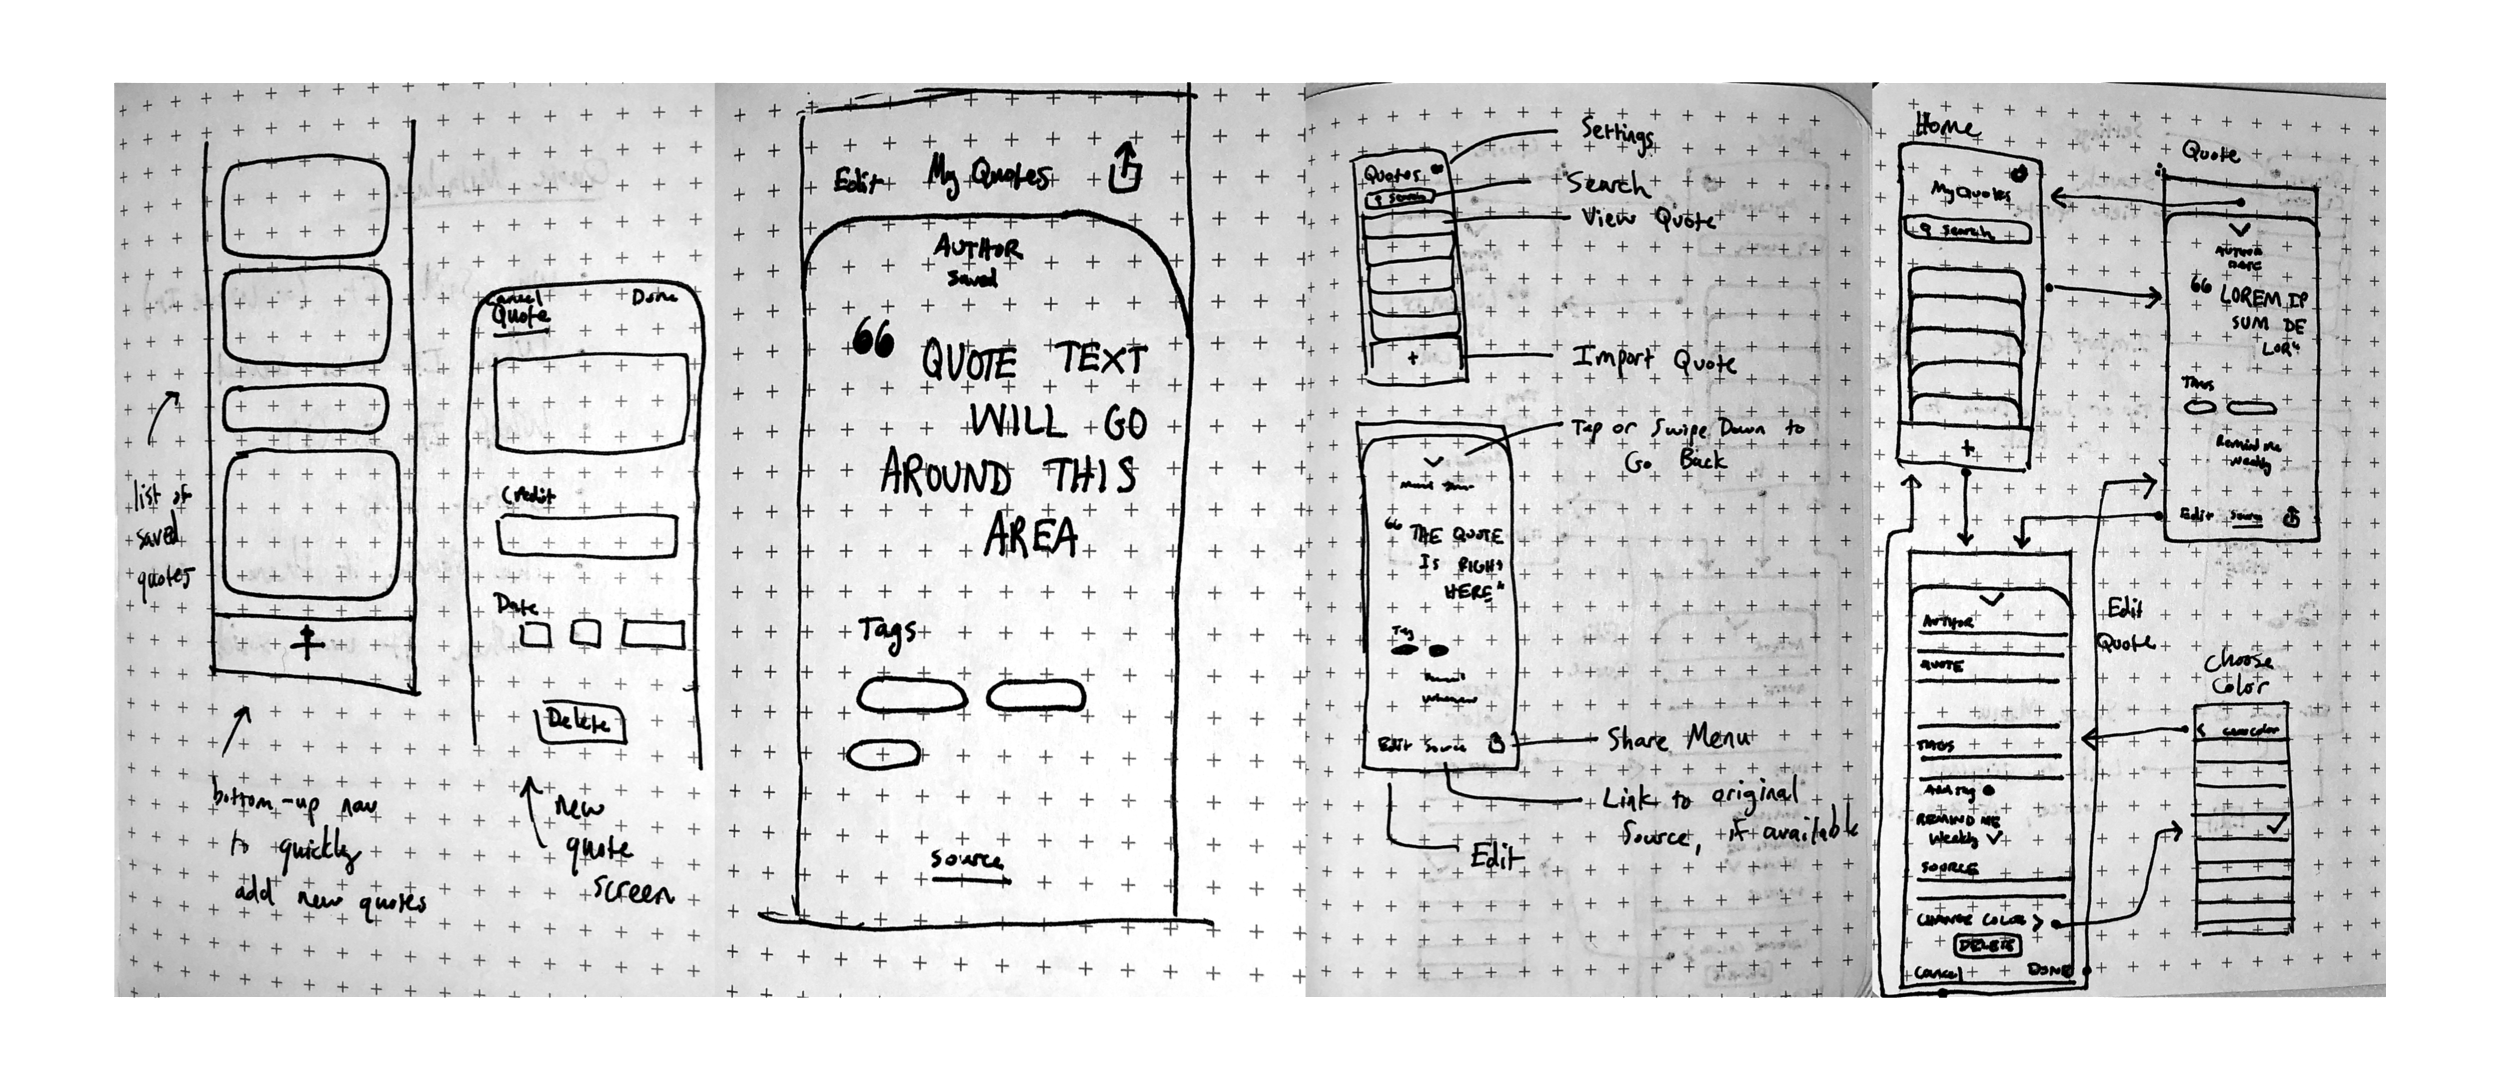 Cancel
Done
Quote
Credit
Date
Delete
list of
saved
quotes
bottom-up nav
to quickly
add new quotes
new
quote
screen
Edit
My Quotes
AUTHOR
saved
“ QUOTE TEXT
WILL GO
AROUND THIS
AREA
Tags
source
Quotes
search
Settings
Search
View Quote
+
Import Quote
Tap or Swipe Down to
Go Back
“ THE QUOTE
IS RIGHT
HERE"
Tag
Edit Source
Share Menu
Link to original
Source, if available
Edit
Home
My Quotes
search
+
Quote
AUTHOR
DATE
“ LOREM IP
SUM DE
LOR"
TAGS
Remind me
weekly
Edit Source
Edit
Quote
AUTHOR
QUOTE
TAGS
Add tag
REMIND ME
Weekly
SOURCE
CHANGE COLOR >
DELETE
Cancel
DONE
Choose
Color